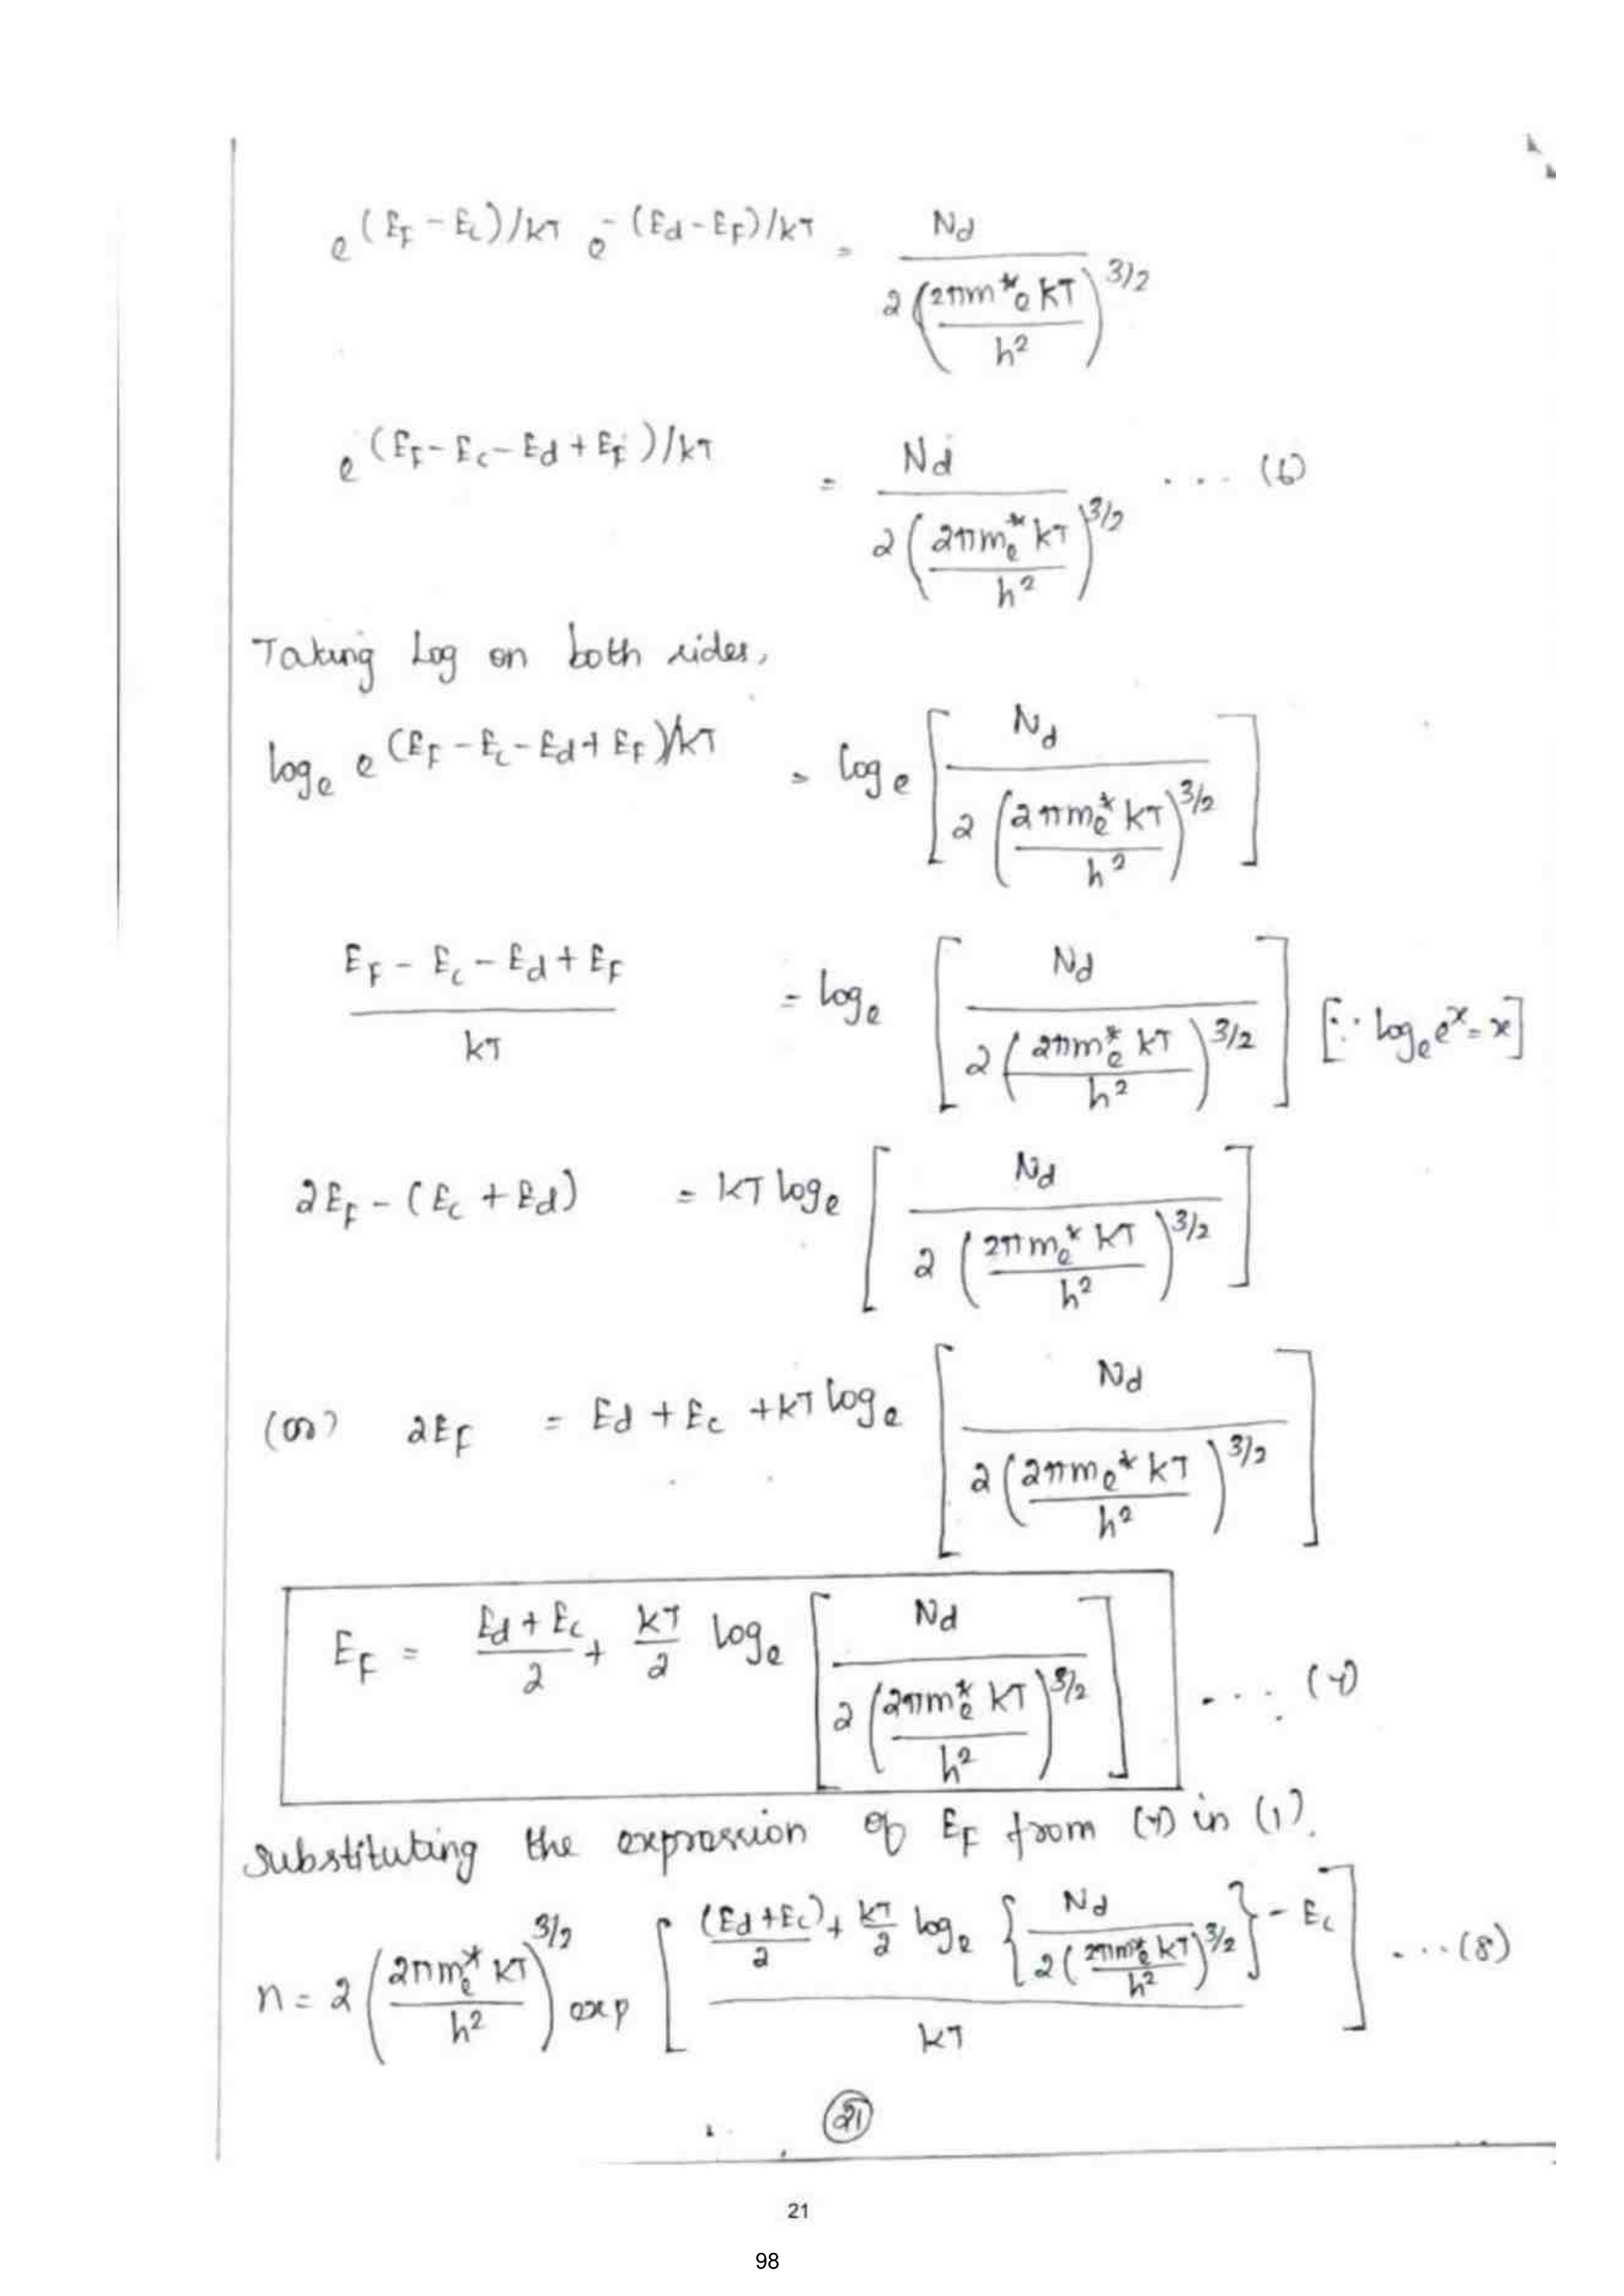 e^{(E_F - E_c)/kT} e^{-(E_d - E_F)/kT} = \frac{N_d}{2\left(\frac{2πm^*_e kT}{h^2}\right)^{3/2}}
e^{(E_F - E_c - E_d + E_F)/kT} = \frac{N_d}{2\left(\frac{2πm_e^* kT}{h^2}\right)^{3/2}} .... (6)
Taking Log on both sides,
log_e e^{(E_F - E_c - E_d + E_F)/kT} = log_e \left[\frac{N_d}{2\left(\frac{2πm_e^* kT}{h^2}\right)^{3/2}}\right]
\frac{E_F - E_c - E_d + E_F}{kT} = log_e \left[\frac{N_d}{2\left(\frac{2πm_e^* kT}{h^2}\right)^{3/2}}\right] [∵ log_e e^x = x]
2E_F - (E_c + E_d) = kT log_e \left[\frac{N_d}{2\left(\frac{2πm_e^* kT}{h^2}\right)^{3/2}}\right]
(or) 2E_F = E_d + E_c + kT log_e \left[\frac{N_d}{2\left(\frac{2πm_e^* kT}{h^2}\right)^{3/2}}\right]
E_F = \frac{E_d + E_c}{2} + \frac{kT}{2} log_e \left[\frac{N_d}{2\left(\frac{2πm_e^* kT}{h^2}\right)^{3/2}}\right] .... (7)
Substituting the expression of E_F from (7) in (1).
n = 2\left(\frac{2πm_e^* kT}{h^2}\right)^{3/2} exp \left[\frac{\frac{(E_d + E_c)}{2} + \frac{kT}{2} log_e \left\{\frac{N_d}{2\left(\frac{2πm_e^* kT}{h^2}\right)^{3/2}}\right\} - E_c}{kT}\right] ....(8)
21
21
98